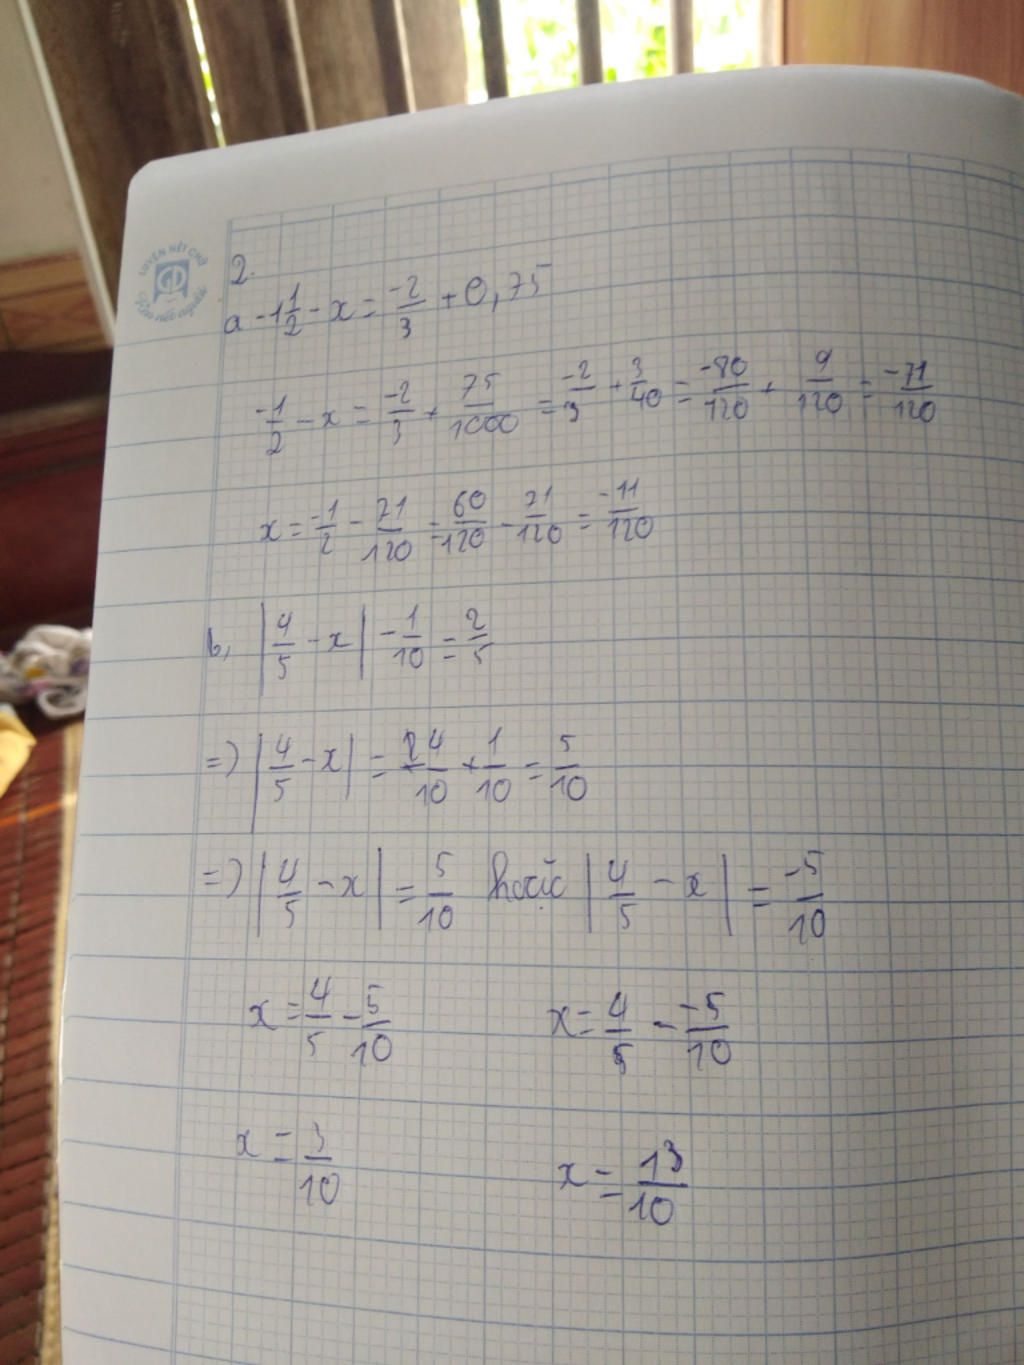 LUYỆN NÉT CHỮ
GD
Rèn nết người
2.
a -1 1/2 - x = -2/3 + 0,75
-1/2 - x = -2/3 + 75/1000 = -2/3 + 3/40 = -80/120 + 9/120 = -71/120
x = -1/2 - 71/120 = 60/120 - 71/120 = -11/120
b, |4/5 - x| - 1/10 = 2/5
=) |4/5 - x| = 4/10 + 1/10 = 5/10
=) |4/5 - x| = 5/10 hoặc |4/5 - x| = -5/10
x = 4/5 - 5/10 x = 4/5 - -5/10
x = 3/10 x = 13/10